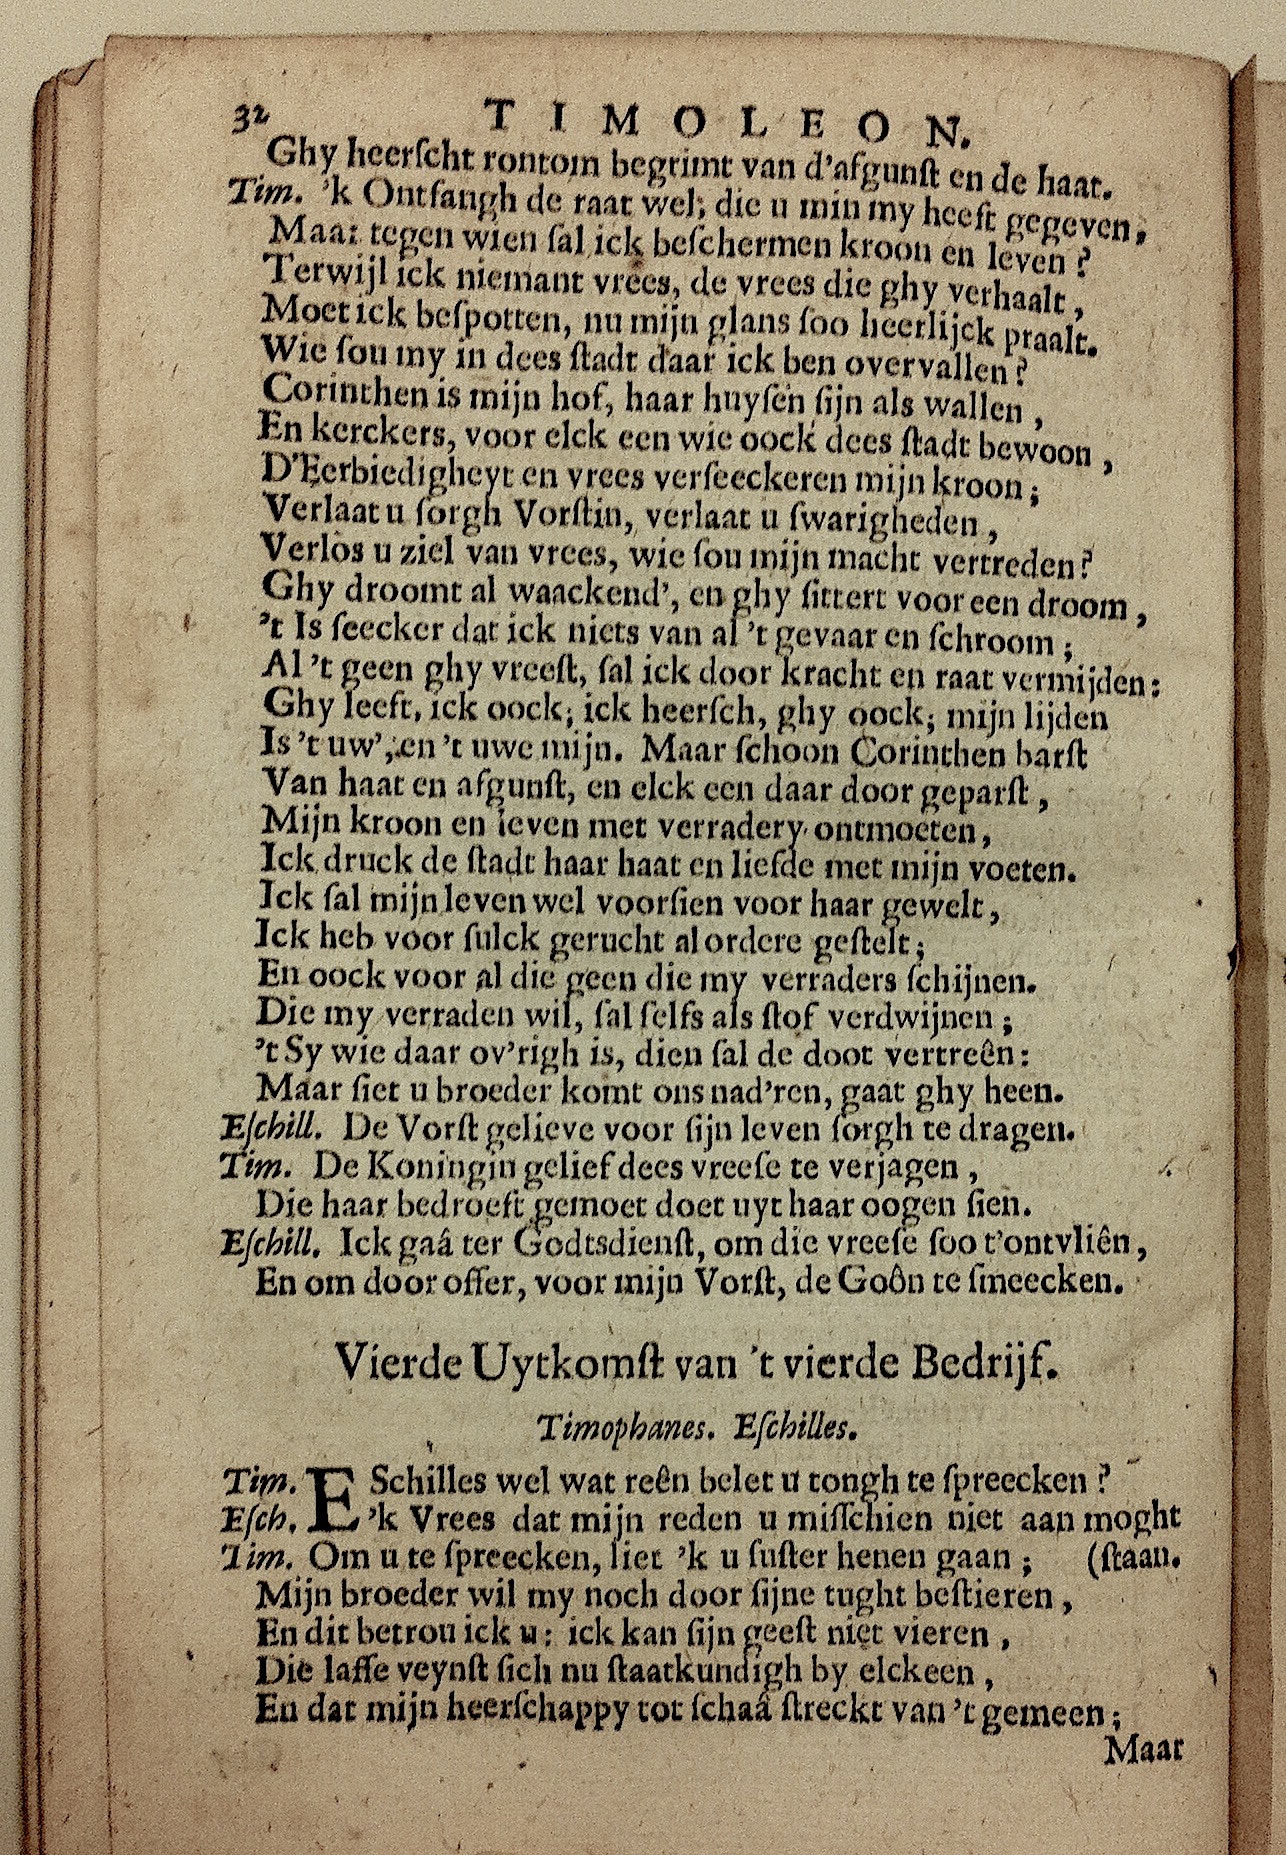 32 TIMOLEON.
Ghy heerſcht rontom begrimt van d'afgunſt en de haat.
Tim. 'k Ontfangh de raat wel, die u min my heeft gegeven,
Maar tegen wien ſal ick beſchermen kroon en leven?
Terwijl ick niemant vrees, de vrees die ghy verhaalt,
Moet ick beſpotten, nu mijn glans ſoo heerlijck praalt.
Wie ſou my in dees ſtadt daar ick ben overvallen?
Corinthen is mijn hof, haar huyſen ſijn als wallen,
En kerckers, voor elck een wie oock dees ſtadt bewoon,
D'Eerbiedigheyt en vrees verſeeckeren mijn kroon;
Verlaat u ſorgh Vorſtin, verlaat u ſwarigheden,
Verlos u ziel van vrees, wie ſou mijn macht vertreden?
Ghy droomt al waackend', en ghy ſittert voor een droom,
't Is ſeecker dat ick niets van al 't gevaar en ſchroom;
Al 't geen ghy vreeſt, ſal ick door kracht en raat vermijden:
Ghy leeft, ick oock; ick heerſch, ghy oock; mijn lijden
Is 't uw', en 't uwe mijn. Maar ſchoon Corinthen barſt
Van haat en afgunſt, en elck een daar door geparſt,
Mijn kroon en leven met verradery ontmoeten,
Ick druck de ſtadt haar haat en liefde met mijn voeten.
Ick ſal mijn leven wel voorſien voor haar gewelt,
Ick heb voor ſulck gerucht al ordere geſtelt;
En oock voor al die geen die my verraders ſchijnen.
Die my verraden wil, ſal ſelfs als ſtof verdwijnen;
't Sy wie daar ov'righ is, dien ſal de doot vertreên:
Maar ſiet u broeder komt ons nad'ren, gaat ghy heen.
Eſchill. De Vorſt gelieve voor ſijn leven ſorgh te dragen.
Tim. De Koningin gelief dees vreeſe te verjagen,
Die haar bedroeft gemoet doet uyt haar oogen ſien.
Eſchill. Ick gaâ ter Godtsdienſt, om die vreeſe ſoo t'ontvliên,
En om door offer, voor mijn Vorſt, de Goôn te ſmeecken.
Vierde Uytkomſt van 't vierde Bedrijf.
Timophanes. Eſchilles.
Tim. ESchilles wel wat reên belet u tongh te ſpreecken?
Eſch. 'k Vrees dat mijn reden u miſſchien niet aan moght
Tim. Om u te ſpreecken, liet 'k u ſuſter henen gaan; (ſtaan.
Mijn broeder wil my noch door ſijne tught beſtieren,
En dit betrou ick u: ick kan ſijn geeſt niet vieren,
Die laffe veynſt ſich nu ſtaatkundigh by elckeen,
En dat mijn heerſchappy tot ſchaâ ſtreckt van 't gemeen;
Maar